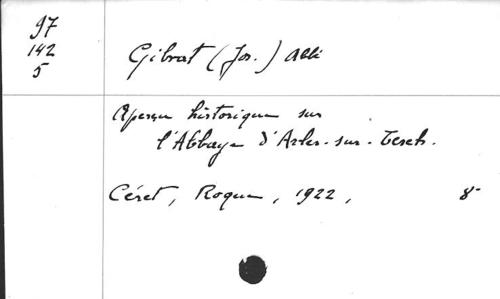 97
142
5
Gibrat (Jos.) Abbé
Aperçu historique sur
l'Abbaye d'Arles-sur-Tech.
Céret, Roque, 1922, 8°